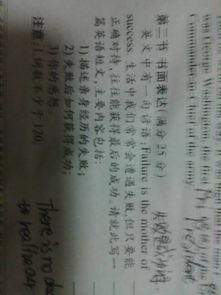 was George Washington, the first
Commander in Chief of the army
第二节 书面表达(满分 25 分)
英文中有一句谚语“Failure is the mother of
success. 生活中我们常常会遭遇失败,但只要能
正确对待,往往能获得最后的成功。请就此写一
篇英语短文,主要内容包括:
1) 描述亲身经历的失败;
2) 失败后如何获得成功;
3) 你的感想。
注意:1. 词数不少于 120;
There is no